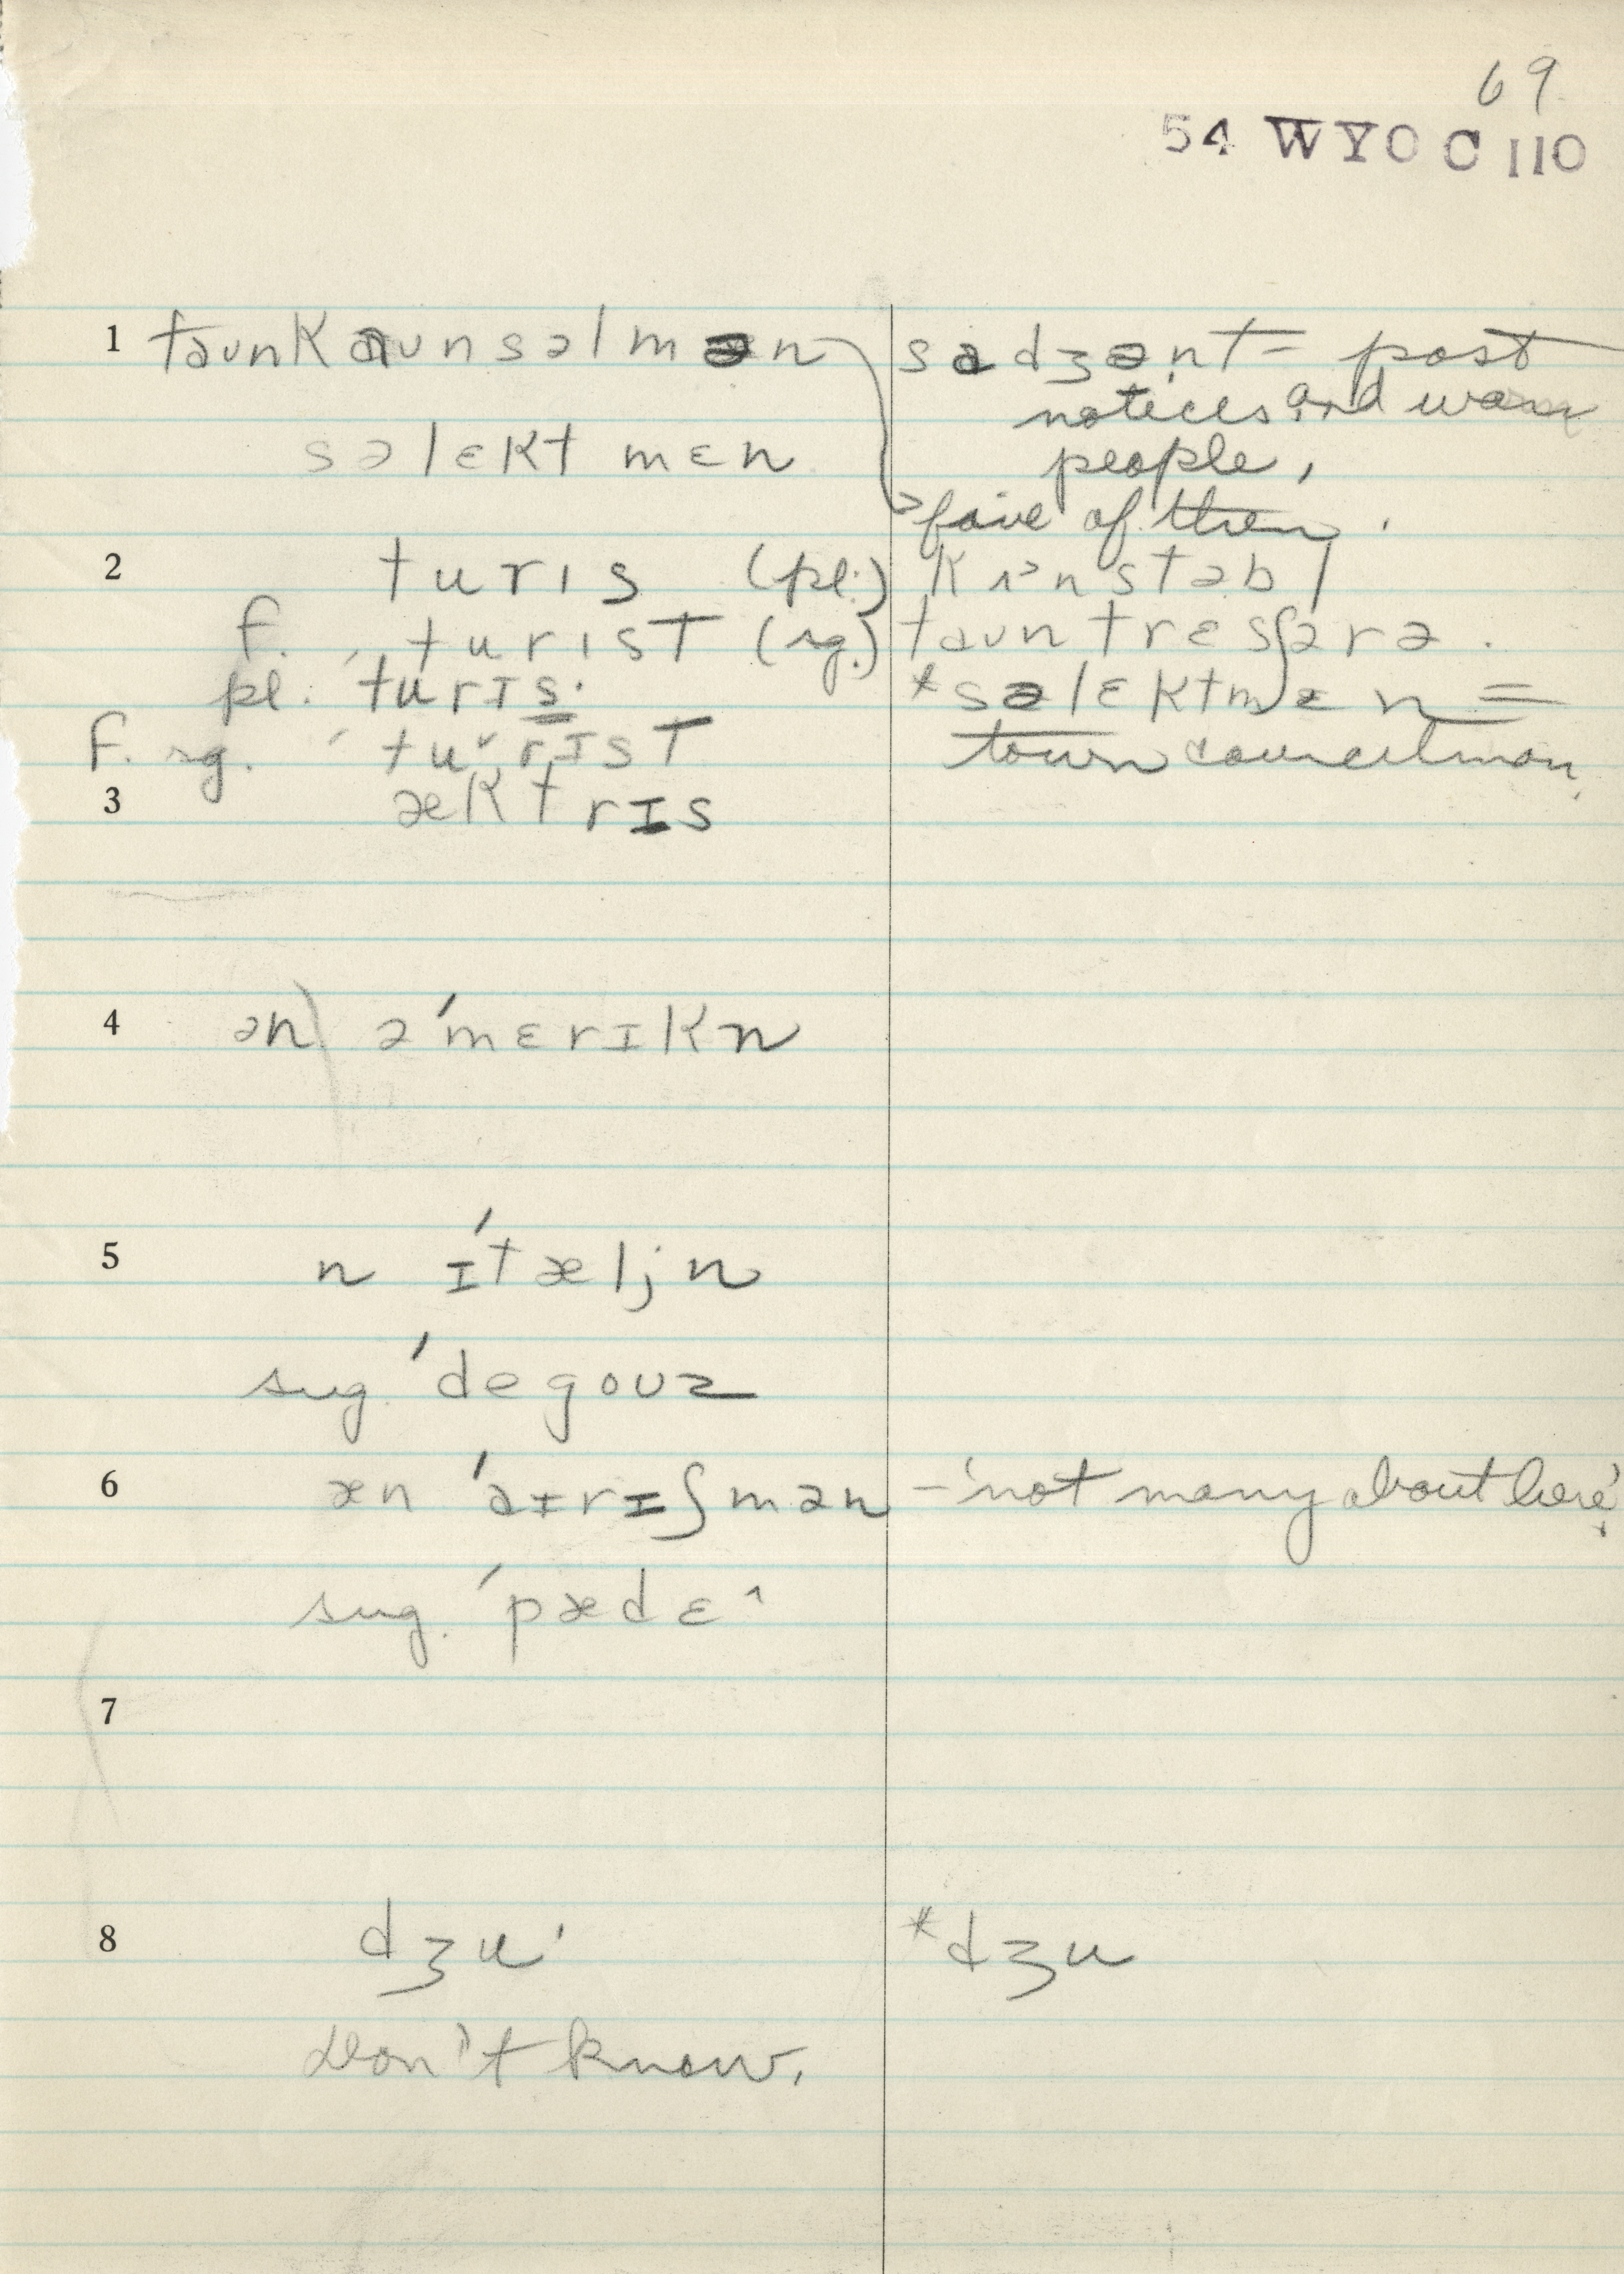 69
54 WYO C 110
1 taunkaunsəlmən
səlɛktmɛn
sadʒənt = post
notices and warn
people,
five of them.
2 turɪs (pl.)
f. turɪst (sg.)
pl. turɪs·
f. sg. tu˅rɪst
taun trɛʃərə.
*səlɛktmɛn =
town councilman.
3 æktrɪs
4 ən) ə'mɛrɪkn
5 n ɪ'tæljn
sug. 'degouz
6 æn 'aɪrɪʃmən – 'not many about here'.
sug. 'pædɛ^
7
8 dʒu'
*dʒu
Don't know.